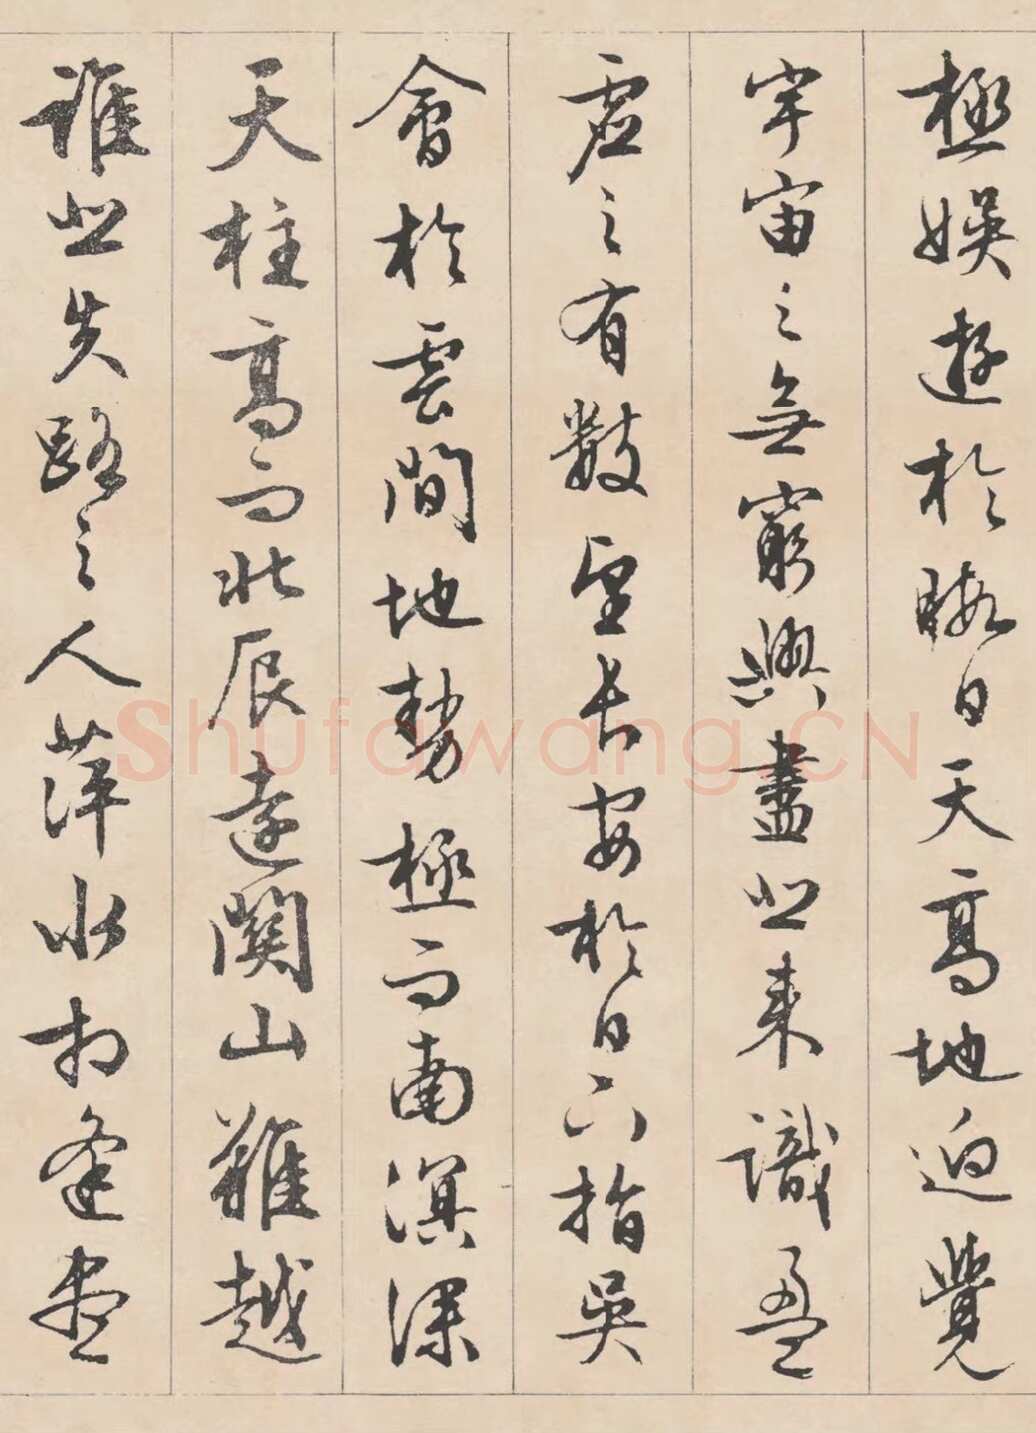 極娛遊於暇日天高地逈覺
宇宙之無窮興盡悲來識盈
虛之有數望長安於日下指吳
會於雲間地勢極而南溟深
天柱高而北辰遠關山難越
誰悲失路之人萍水相逢盡
Shufawang.CN